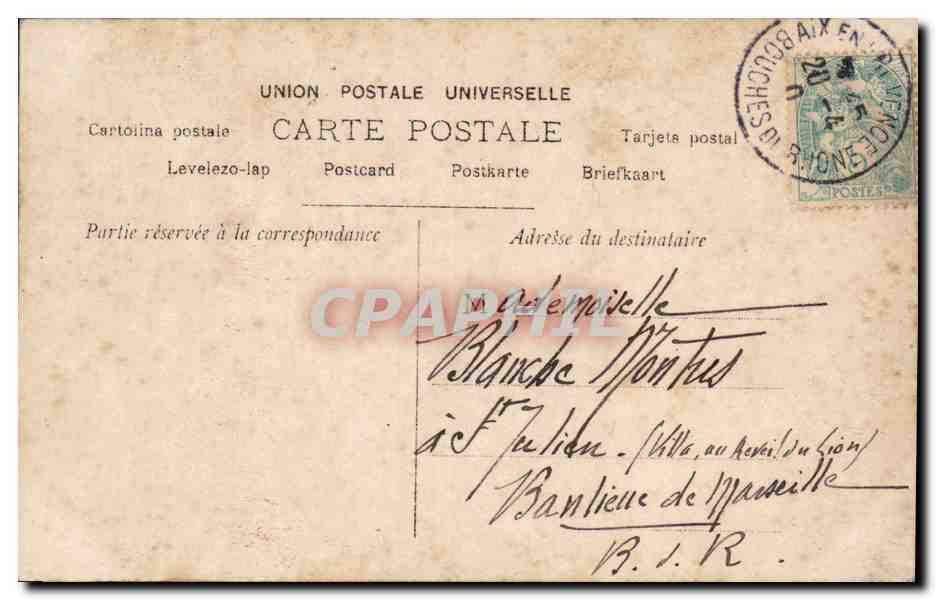 UNION POSTALE UNIVERSELLE
Cartolina postale CARTE POSTALE Tarjeta postal
Levelezo-lap Postcard Postkarte Briefkaart
Partie réservée à la correspondance
Adresse du destinataire
AIX EN PROVENCE
BOUCHES DU RHONE
20 -4
POSTES
CPAPHIL
Mademoiselle
Blanche
à St Julien - (Villa, au Reveil du Lion)
Banlieue de Marseille
B. d. R.